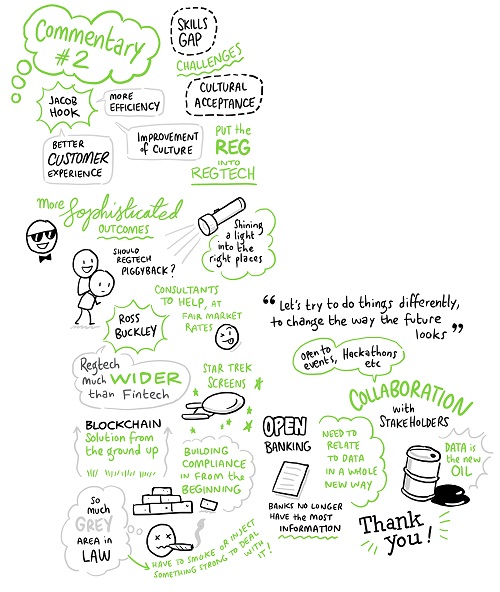 Commentary
#2
SKILLS
GAP
CHALLENGES
CULTURAL
ACCEPTANCE
JACOB
HOOK
MORE
EFFICIENCY
BETTER
CUSTOMER
EXPERIENCE
IMPROVEMENT
OF CULTURE
PUT the
REG
INTO
REGTECH
More Sophisticated
OUTCOMES
Shining
a light
into the
right places
SHOULD
REGTECH
PIGGYBACK?
CONSULTANTS
TO HELP, AT
FAIR MARKET
RATES
ROSS
BUCKLEY
Regtech
much WIDER
than Fintech
STAR TREK
SCREENS
BLOCKCHAIN
Solution from
the ground up
BUILDING
COMPLIANCE
IN FROM the
BEGINNING
So
much
GREY
AREA in
LAW
HAVE TO SMOKE or INJECT
SOMETHING STRONG TO DEAL
WITH IT!
“Let's try to do things differently,
to change the way the future
looks”
OPEN TO
EVENTS,
Hackathons
etc
COLLABORATION
with
STAKEHOLDERS
OPEN
BANKING
BANKS NO LONGER
HAVE the MOST
INFORMATION
NEED TO
RELATE
TO DATA
IN A WHOLE
NEW WAY
DATA is
the new
OIL
Thank
you!